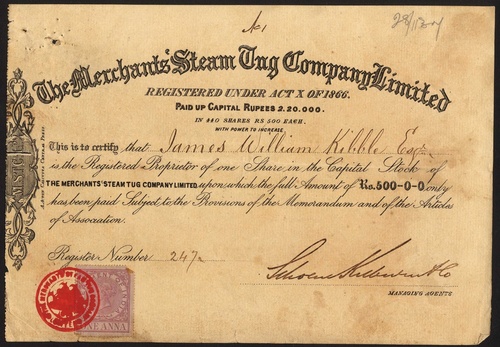 No 1
The Merchants' Steam Tug Company Limited
REGISTERED UNDER ACT X OF 1866.
PAID UP CAPITAL RUPEES 2.20.000.
IN 440 SHARES RS 500 EACH.
WITH POWER TO INCREASE
This is to certify that James William Kibble Esqr
is the Registered Proprietor of one Share in the Capital Stock of
THE MERCHANTS' STEAM TUG COMPANY LIMITED upon which the full Amount of Rs. 500-0-0 only
has been paid Subject to the Provisions of the Memorandum and of the Articles
of Association.
Register Number 247
& Co
MANAGING AGENTS
ONE ANNA